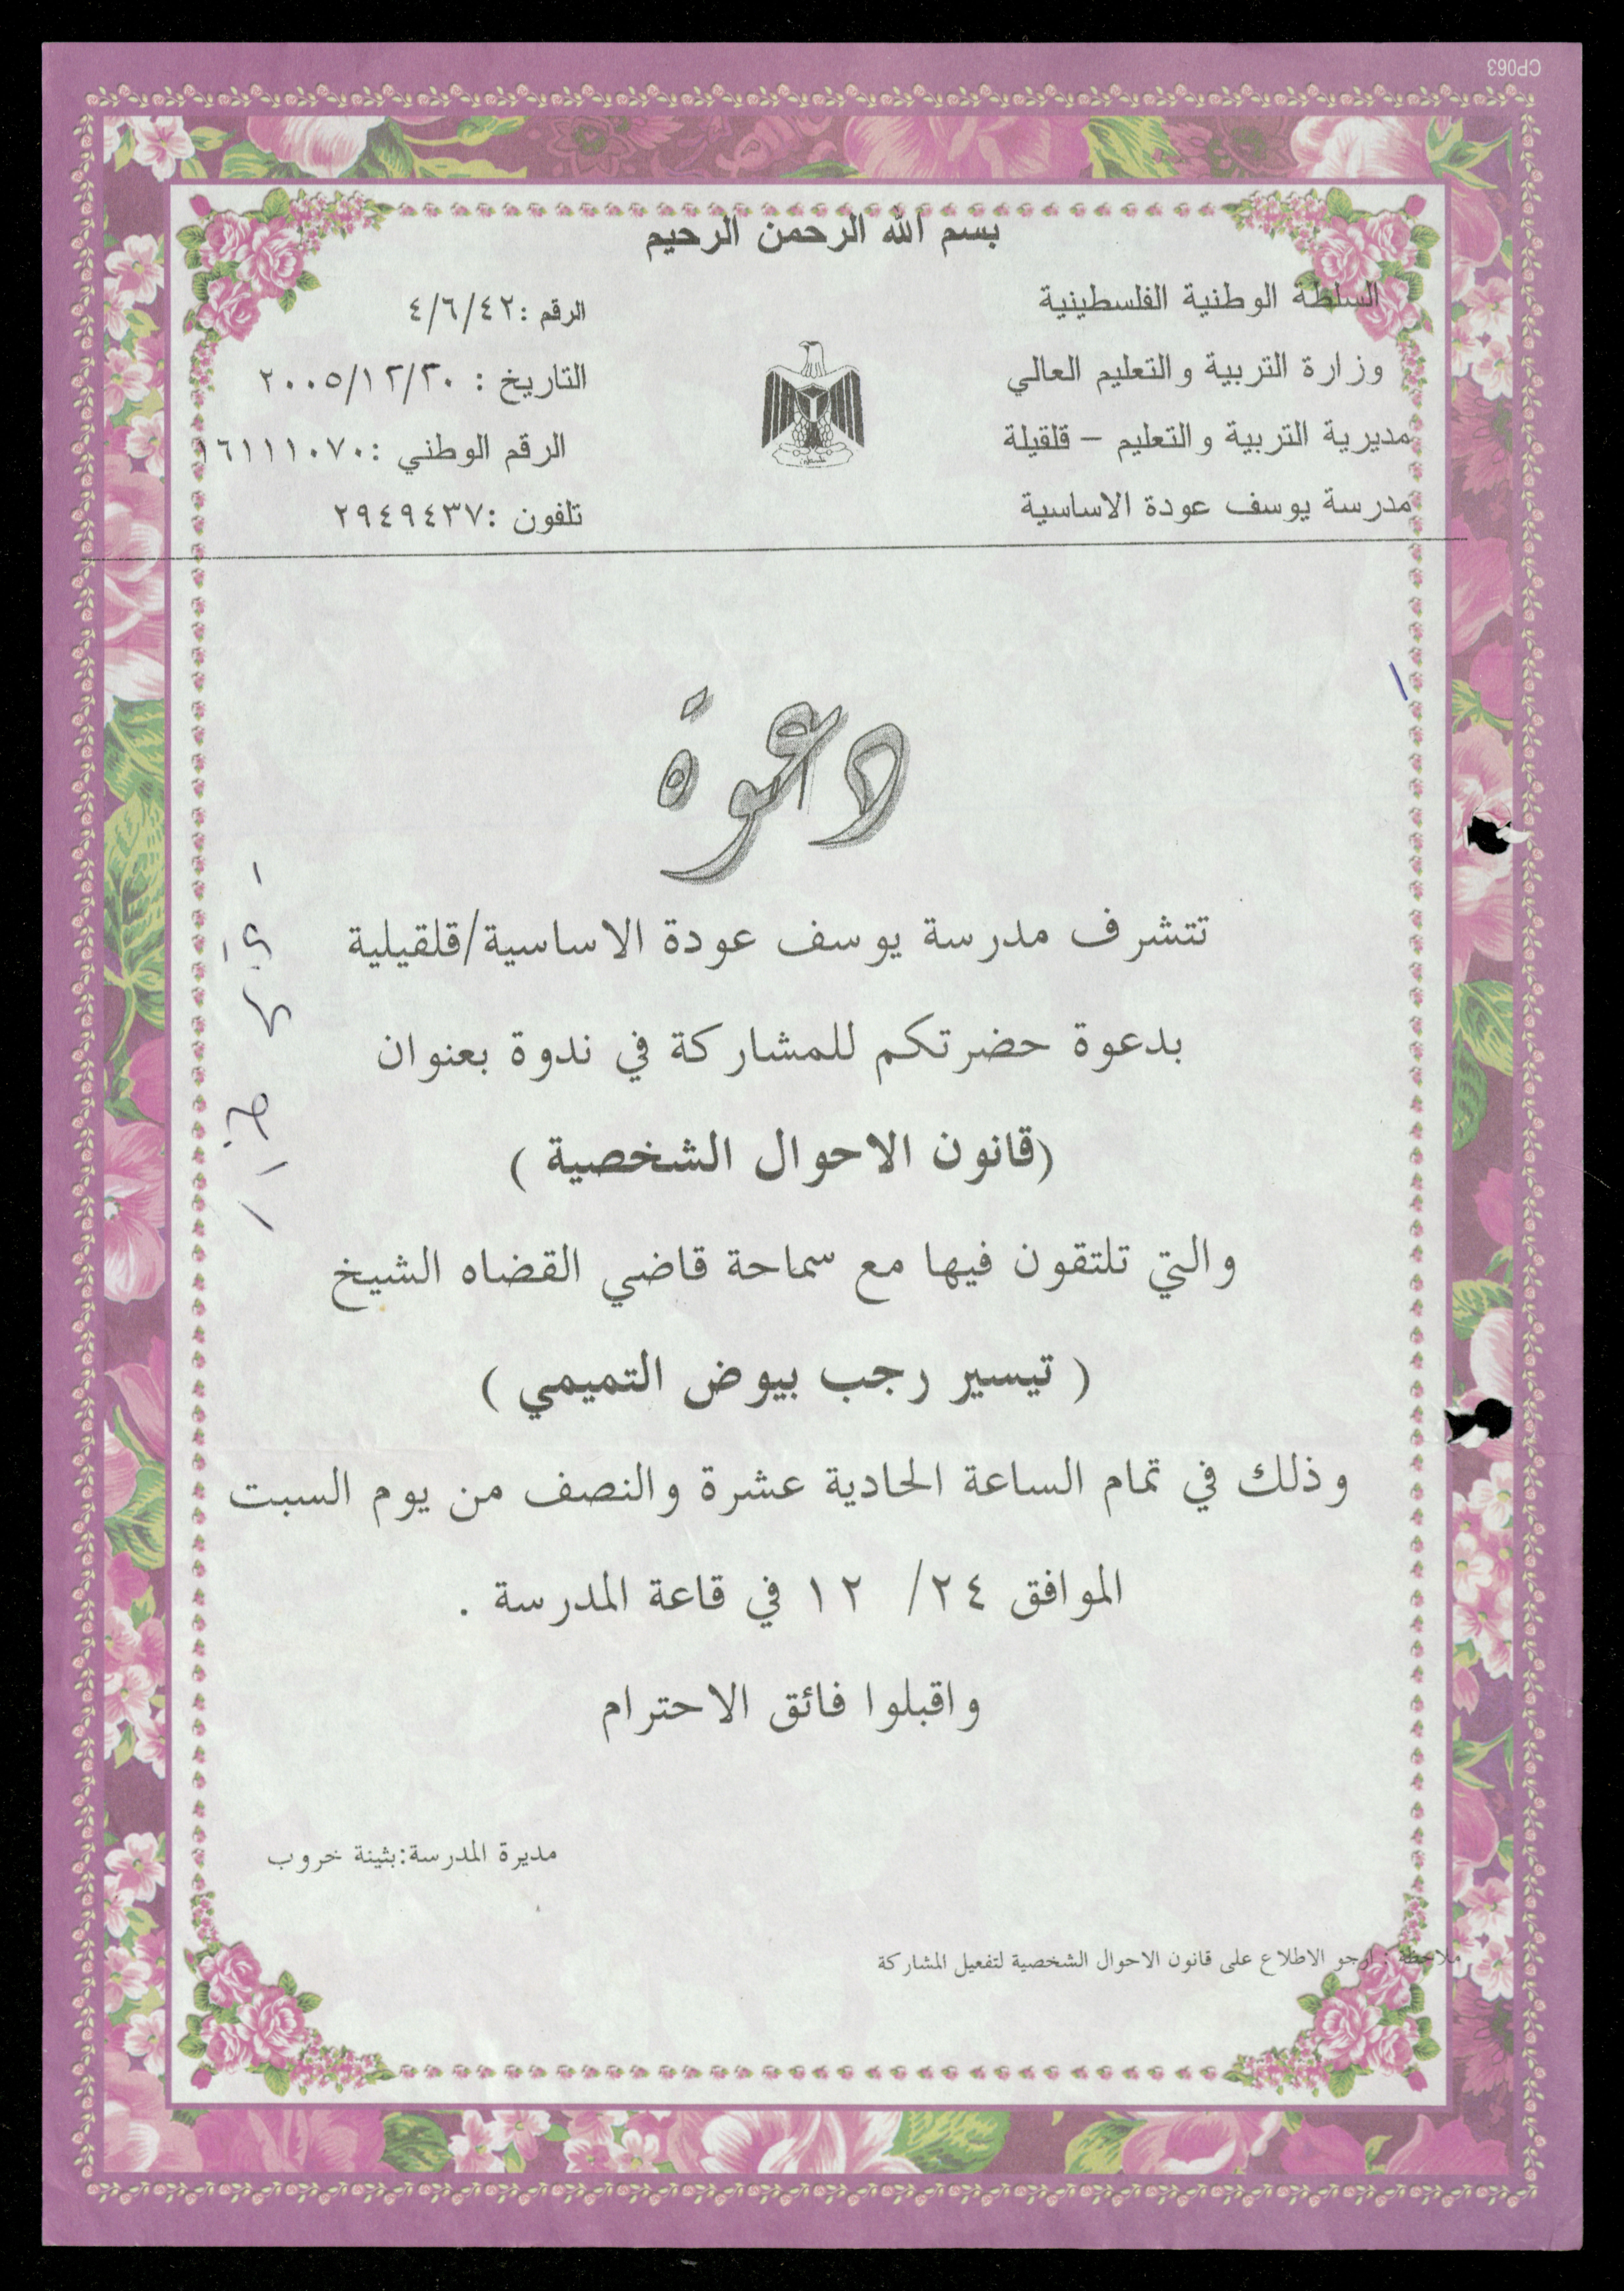 CP063
بسم الله الرحمن الرحيم
السلطة الوطنية الفلسطينية
وزارة التربية والتعليم العالي
مديرية التربية والتعليم – قلقيلة
مدرسة يوسف عودة الاساسية
الرقم :٤/٦/٤٢
التاريخ : ٢٠٠٥/١٢/٢٠
الرقم الوطني :١٦١١١٠٧٠
تلفون :٢٩٤٩٤٣٧
دعوة
تتشرف مدرسة يوسف عودة الاساسية/قلقيلية
بدعوة حضرتكم للمشاركة في ندوة بعنوان
(قانون الاحوال الشخصية )
والتي تلتقون فيها مع سماحة قاضي القضاه الشيخ
( تيسير رجب بيوض التميمي )
وذلك في تمام الساعة الحادية عشرة والنصف من يوم السبت
الموافق ٢٤/ ١٢ في قاعة المدرسة .
واقبلوا فائق الاحترام
مديرة المدرسة:بثينة خروب
ملاحظة : ارجو الاطلاع على قانون الاحوال الشخصية لتفعيل المشاركة